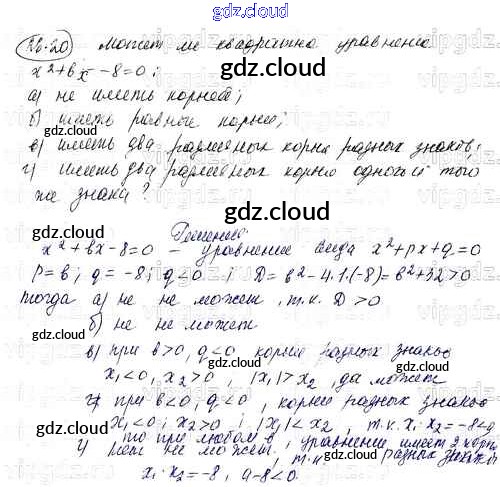 gdz.cloud
26.20 Может ли квадратное уравнение
x²+bx-8=0:
gdz.cloud
а) не иметь корней;
б) иметь равные корни;
gdz.cloud
в) иметь два различных корня разных знаков;
г) иметь два различных корня одного и того
же знака?
gdz.cloud
Решение
x²+bx-8=0 - уравнение вида x²+px+q=0
gdz.cloud
p=b; q=-8; q<0; D=b²-4·1·(-8)=b²+32>0
тогда а) не не может, т.к. D>0
gdz.cloud
б) не не может
в) при b>0, q<0, корни разных знаков
gdz.cloud
x₁<0, x₂>0, |x₁|>x₂, да может
при b<0, q<0, корни разных знаков
gdz.cloud
x₁<0; x₂>0, |x₁|<x₂, т.к. x₁·x₂=-8<0
то при любом b, уравнение имеет 2 корня
г) не может, т.к. разных знаков
x₁·x₂=-8, а-8<0
gdz.cloud